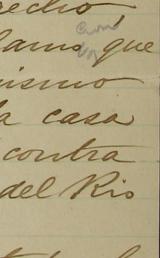 recho
lamo, que
mismo
la casa
contra
del Rio